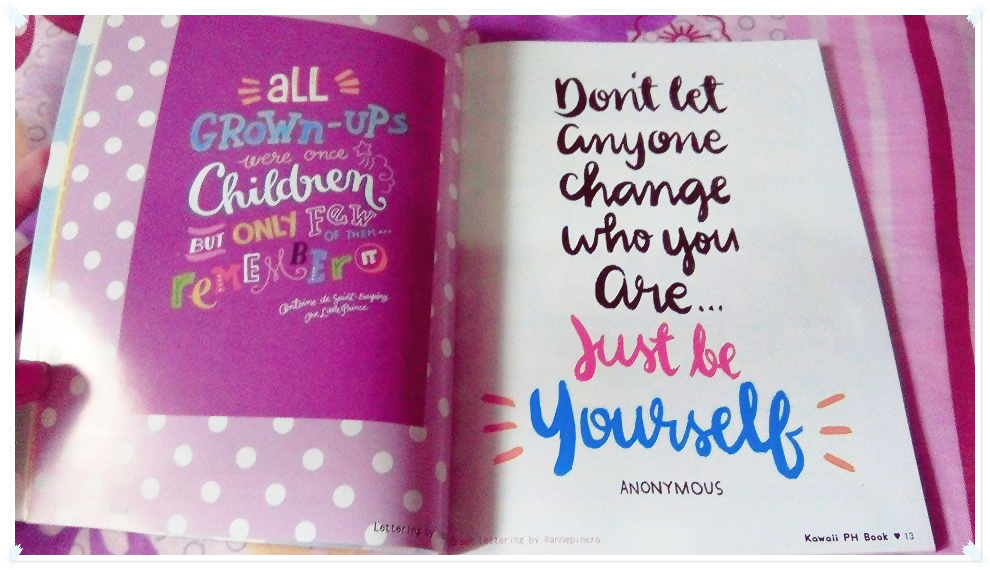 all
GROWn-UPs
were once
Children
BUT ONLY FEW
OF THEM...
reMEMBEr IT
Antoine de Saint-Exupéry
The Little Prince
Lettering by
Don't let
anyone
change
who you
are...
Just be
Yourself
ANONYMOUS
Lettering by @annepinero
Kawaii PH Book ♥ 13